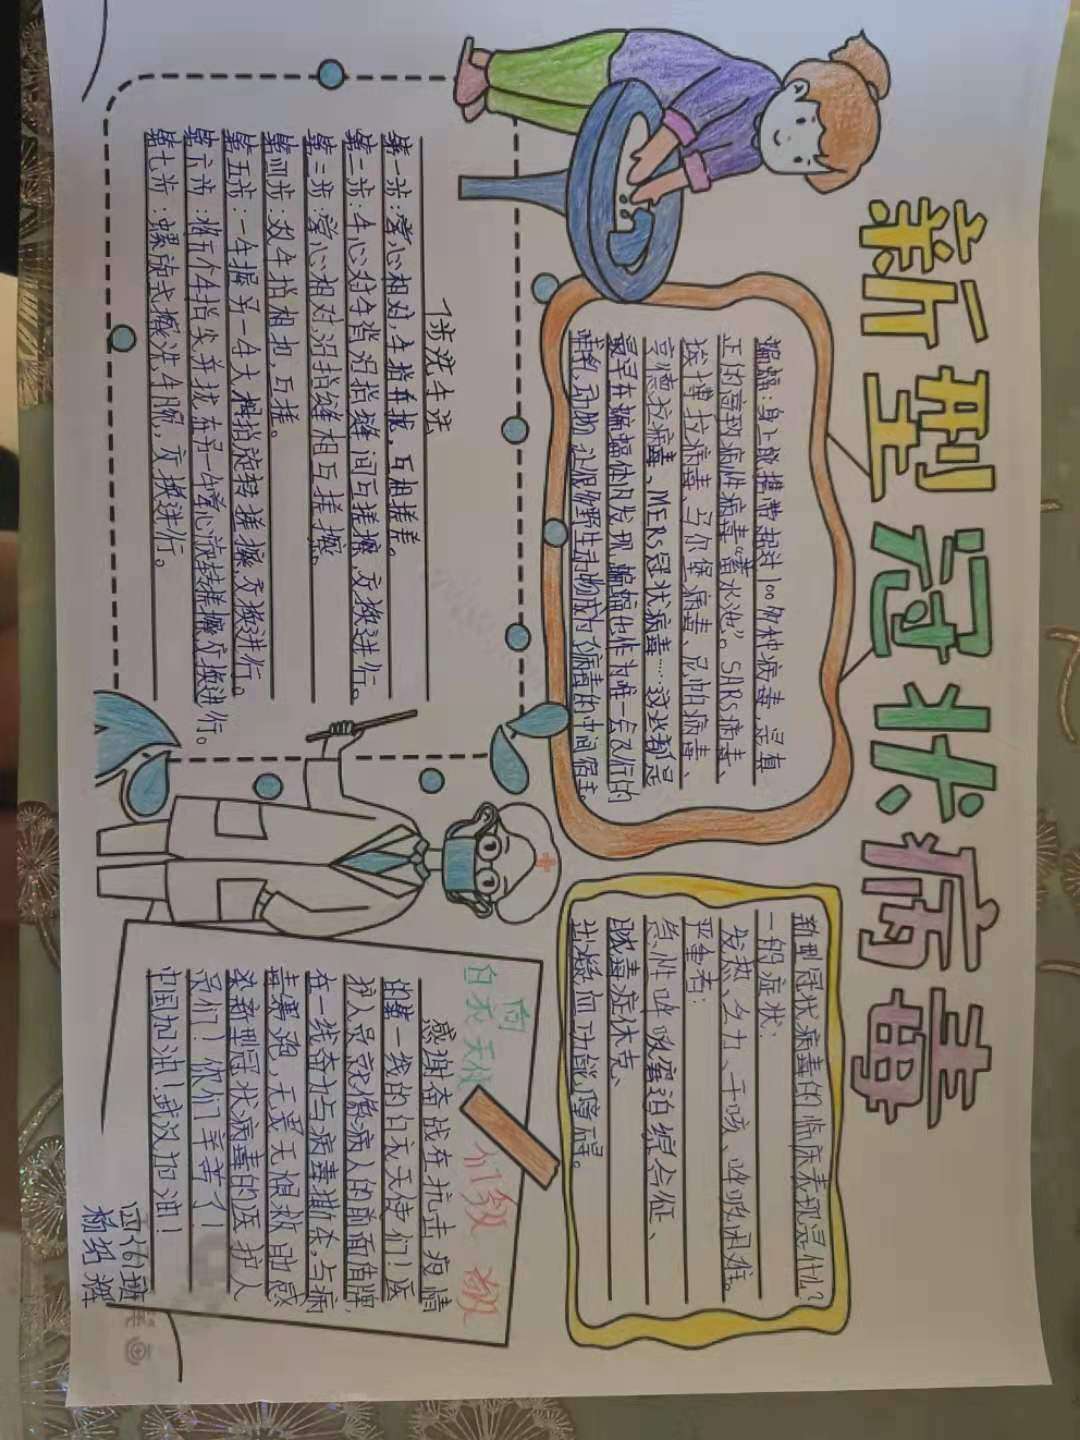 新型冠状病毒
蝙蝠:身上能携带超过100多种病毒,是真
正的高致病性病毒“蓄水池”。SARS病毒、
埃博拉病毒、马尔堡病毒、尼帕病毒、
亨德拉病毒、MERS冠状病毒……这些都是
最早在蝙蝠体内发现,蝙蝠也作为唯一会飞们的
哺乳动物,让很多野生动物成为了病毒的中间宿主。
新型冠状病毒的临床表现是什么?
一的症状:
发热、乏力、干咳、呼吸困难。
严重者:
急性呼吸窘迫综合征、
脓毒症休克、
出凝血功能障碍。
七步洗手法
第一步:掌心相对,手指并拢,互相搓差。
第二步:手心对手背沿指缝间互搓擦,交换进行。
第三步:掌心相对,沿指缝相互搓擦。
第四步:双手指相扣,互搓。
第五步:一手握另一手大拇指旋转搓擦,交换进行。
第六步:将五个手指尖并拢在另一手掌心旋转搓擦,交换进行。
第七步:螺旋式擦洗手腕,交换进行。
向
白衣天使们致敬
感谢奋战在抗击疫情
的第一线的白衣天使们!医
护人员就像病人的前面盾牌,
在一线奋力与病毒撕杀,与病
毒赛跑,无爱无惧救助感
染新型冠状病毒的医护人
员们!你们辛苦了!
中国加油!武汉加油!
四(6)班
杨绍辉